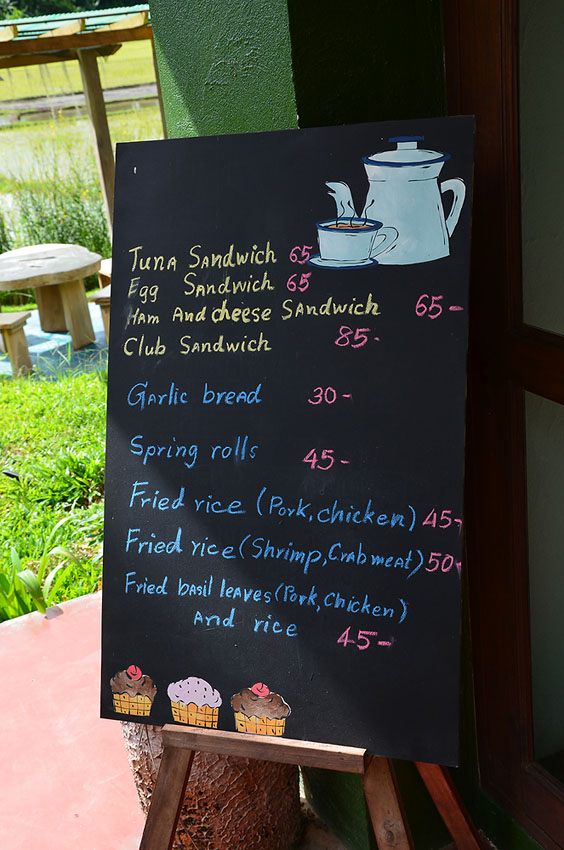 Tuna Sandwich 65
Egg Sandwich 65
Ham And cheese Sandwich 65-
Club Sandwich 85-
Garlic bread 30-
Spring rolls 45-
Fried rice (Pork, chicken) 45-
Fried rice (Shrimp, Crab meat) 50-
Fried basil leaves (Pork, Chicken)
And rice 45-